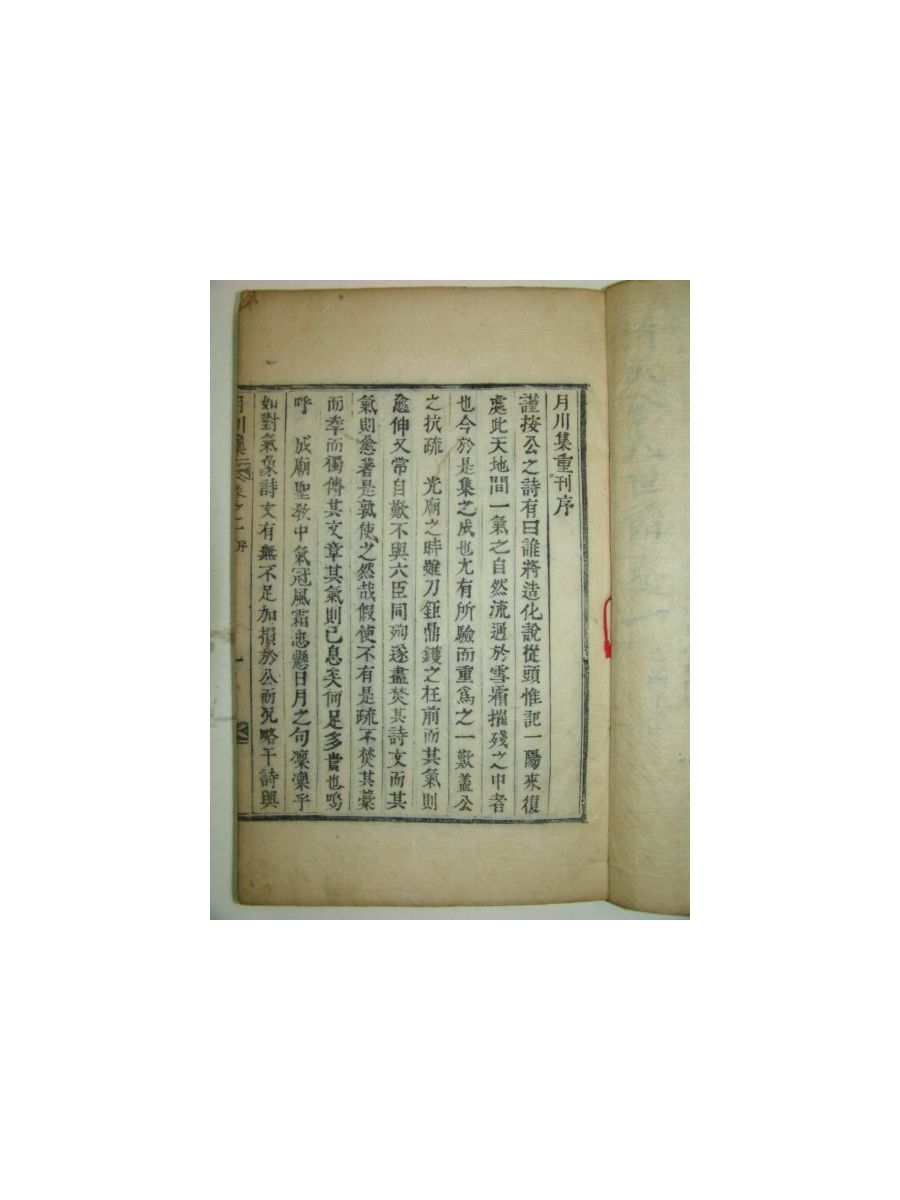 月川集重刊序
謹按公之詩有曰誰將造化說從頭惟記一陽來復
處此天地間一氣之自然流過於雪霜摧殘之中者
也今於是集之成也尤有所驗而重爲之一歎盖公
之抗疏 光廟之時雖刀鉅鼎鑊之枉前而其氣則
愈伸又常自歎不與六臣同殉遂盡焚其詩文而其
氣則愈著是孰使之然哉假使不有是疏不焚其藁
而季而獨傳其文章其氣則已息矣何足多貴也嗚
呼 成廟聖敎中氣冠風霜忠懸日月之句凜凜乎
如對氣象詩文有無不足加損於公而况略干詩與
月川集 卷之一 序
一